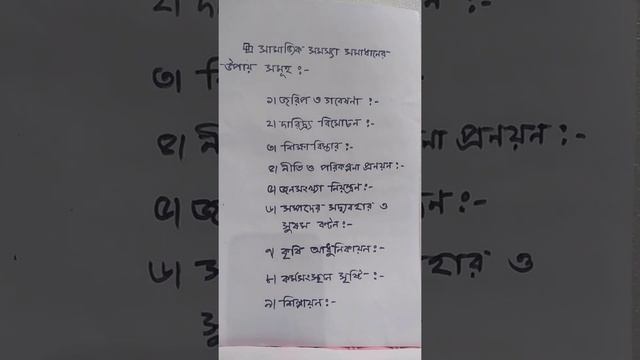 সামাজিক সমস্যা সমাধানের
উপায় সমূহ :-
১) জরিপ ও গবেষনা :-
২) দারিদ্র্য বিমোচন :-
৩) শিক্ষা বিস্তার :-
৪) নীতি ও পরিকল্পনা প্রনয়ন :-
৫) জনসংখ্যা নিয়ন্ত্রন :-
৬) সম্পদের সদ্ব্যবহার ও
সুষম বণ্টন :-
৭) কৃষি আধুনিকায়ন :-
৮) কর্মসংস্থান সৃষ্টি :-
৯) শিল্পায়ন :-